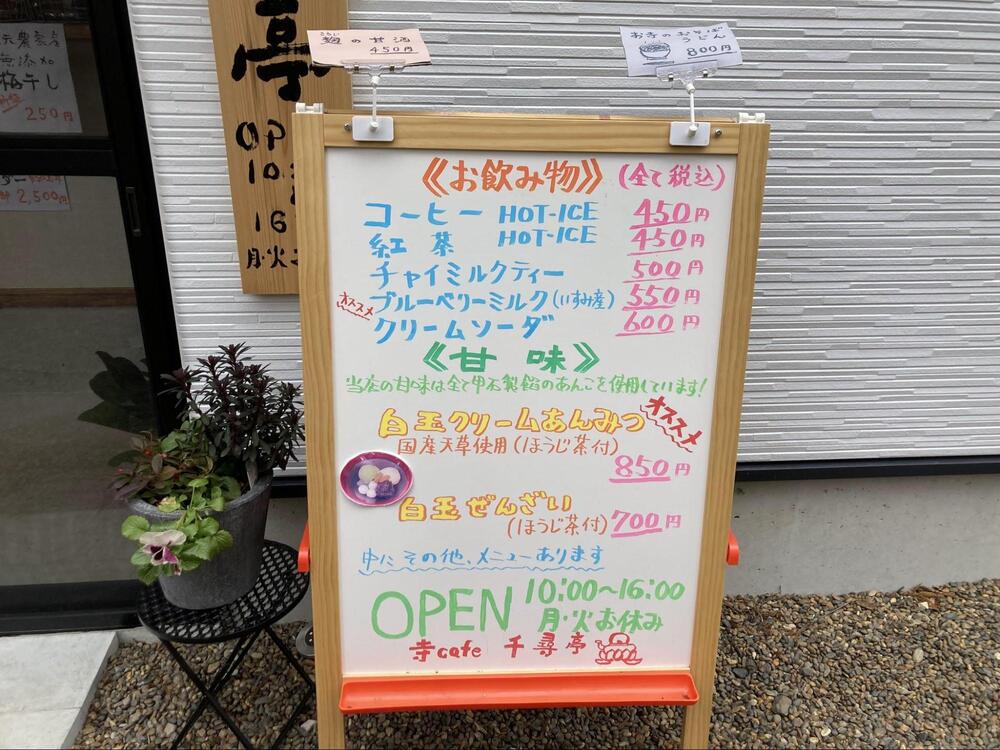 元農家産
無添加
梅干し
250円
2,500円
亭
OP
10
16
月・火
こうじ
麹の甘酒
450円
お寺のおそば
うどん
800円
《お飲み物》(全て税込)
コーヒー HOT・ICE 450円
紅茶 HOT・ICE 450円
チャイミルクティー 500円
オススメ ブルーベリーミルク(いすみ産) 550円
クリームソーダ 600円
《甘味》
当店の甘味は全て甲子製餡のあんこを使用しています!
白玉クリームあんみつ オススメ
国産天草使用(ほうじ茶付)
850円
白玉ぜんざい
(ほうじ茶付) 700円
中にその他、メニューあります
OPEN 10:00~16:00
月・火お休み
寺cafe 千尋亭